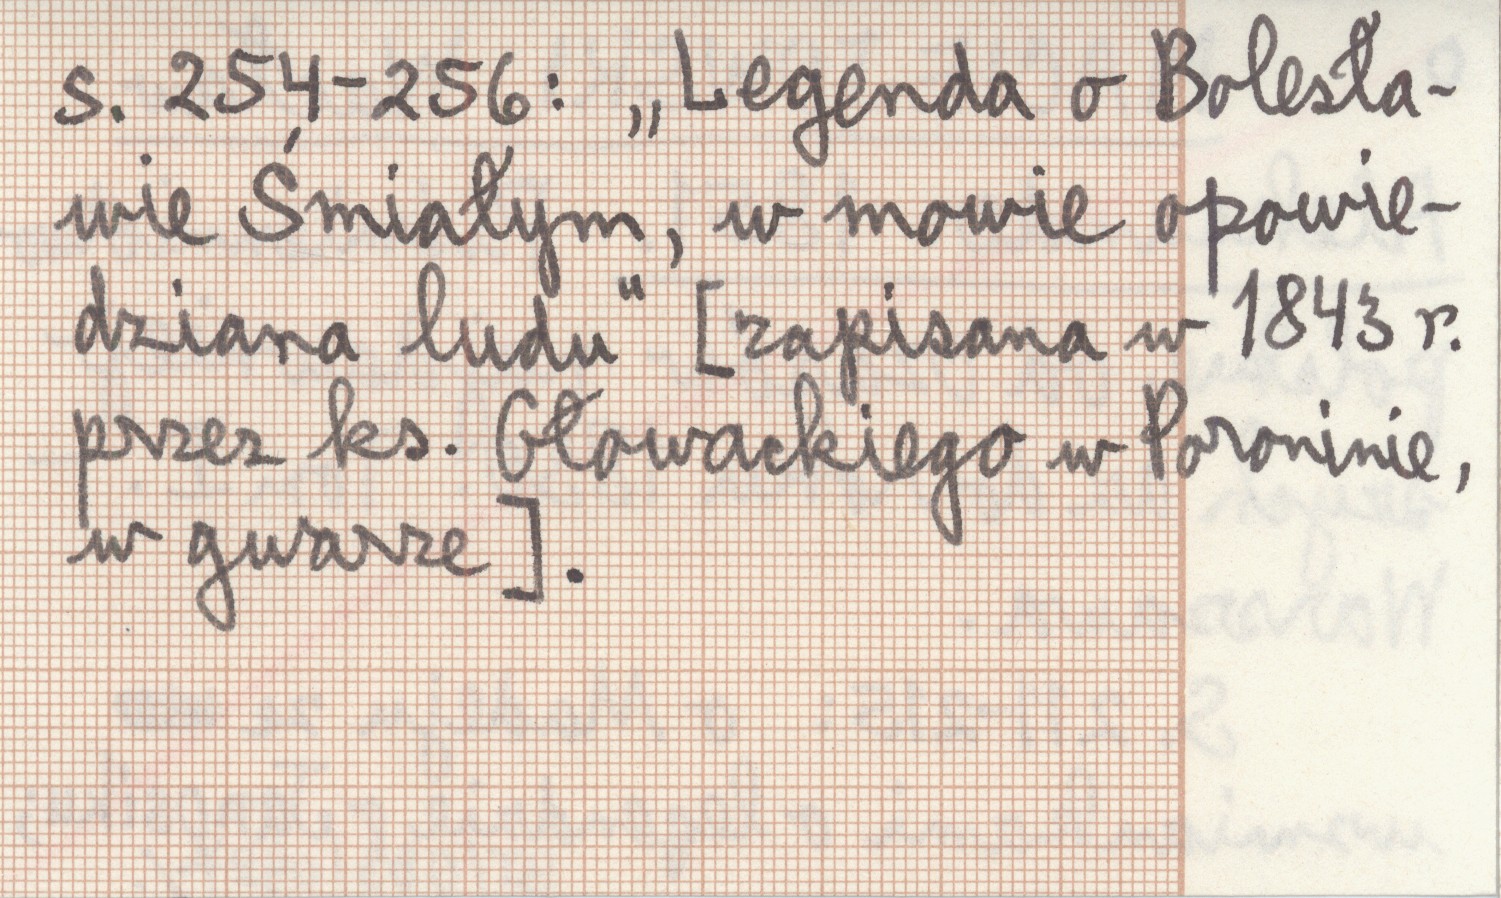 s. 254-256: „Legenda o Bolesła-
wie Śmiałym, w mowie opowie-
dziana ludu" [zapisana w 1843 r.
przez ks. Głowackiego w Poroninie,
w gwarze].